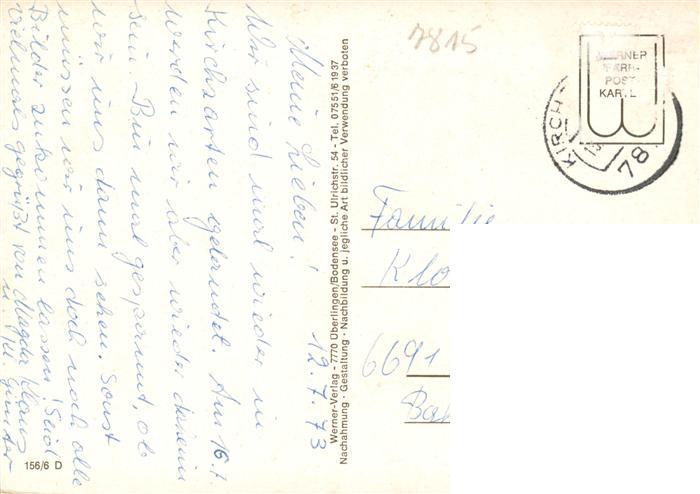 12.7.73
Meine Lieben!
Wir sind mal wieder in
Kirchzarten gelandet. Am 16.7.
werden wir aber wieder daheim
sein. Bin mal gespannt, ob
wir uns dann sehen. Sonst
müssen wir uns doch noch alle
Bilder zukommen lassen. Seid
vielmals gegrüßt von Magda Klaus
u. Günter
156/6 D
Werner-Verlag - 7770 Überlingen/Bodensee - St. Ulrichstr. 54 - Tel. 07551/61937
Nachahmung · Gestaltung · Nachbildung u. jegliche Art bildlicher Verwendung verboten
7815
WERNER
FARB-
POST
KARTE
KIRCH
78
Familie
Klo
6691